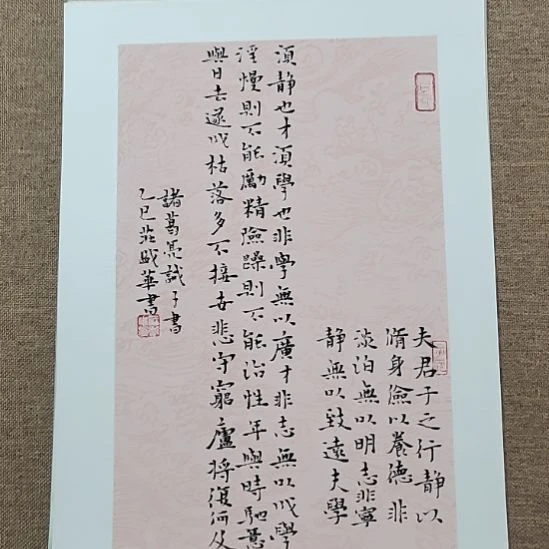 夫君子之行静以
脩身儉以養德非
淡泊無以明志非寧
静無以致遠夫學
須静也才須學也非學無以廣才非志無以成學
淫慢則不能勵精險躁則不能治性年與時馳意
與日去遂成枯落多不接世悲守窮廬將復何及
諸葛亮誡子書
乙巳莊華書